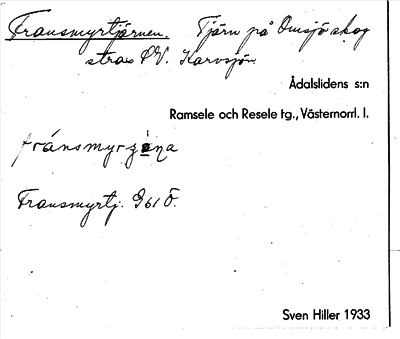 Fransmyrtjärnen. Tjärn på Omsjö skog
strax SV. Karvsjön
Ådalslidens s:n
Ramsele och Resele tg., Västernorrl. l.
Fransmyrtj. 961 Ö.
Sven Hiller 1933